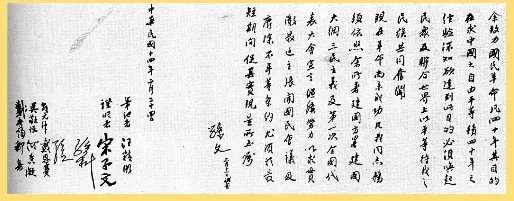 余致力國民革命凡四十年其目的
在求中國之自由平等積四十年之
經驗深知欲達到此目的必須喚起
民衆及聯合世界上以平等待我之
民族共同奮鬥
現在革命尚未成功凡我同志務
須依照余所著建國方畧建國
大綱三民主義及第一次全國代
表大會宣言繼續努力以求貫
澈最近主張開國民會議及
廢除不平等條約尤須於最
短期間促其實現是所至囑
孫文
中華民國十四年二月二十四
筆記者 汪精衛
證明者 宋子文
孫科
邵元冲 戴恩賽
吳敬恒 何香凝